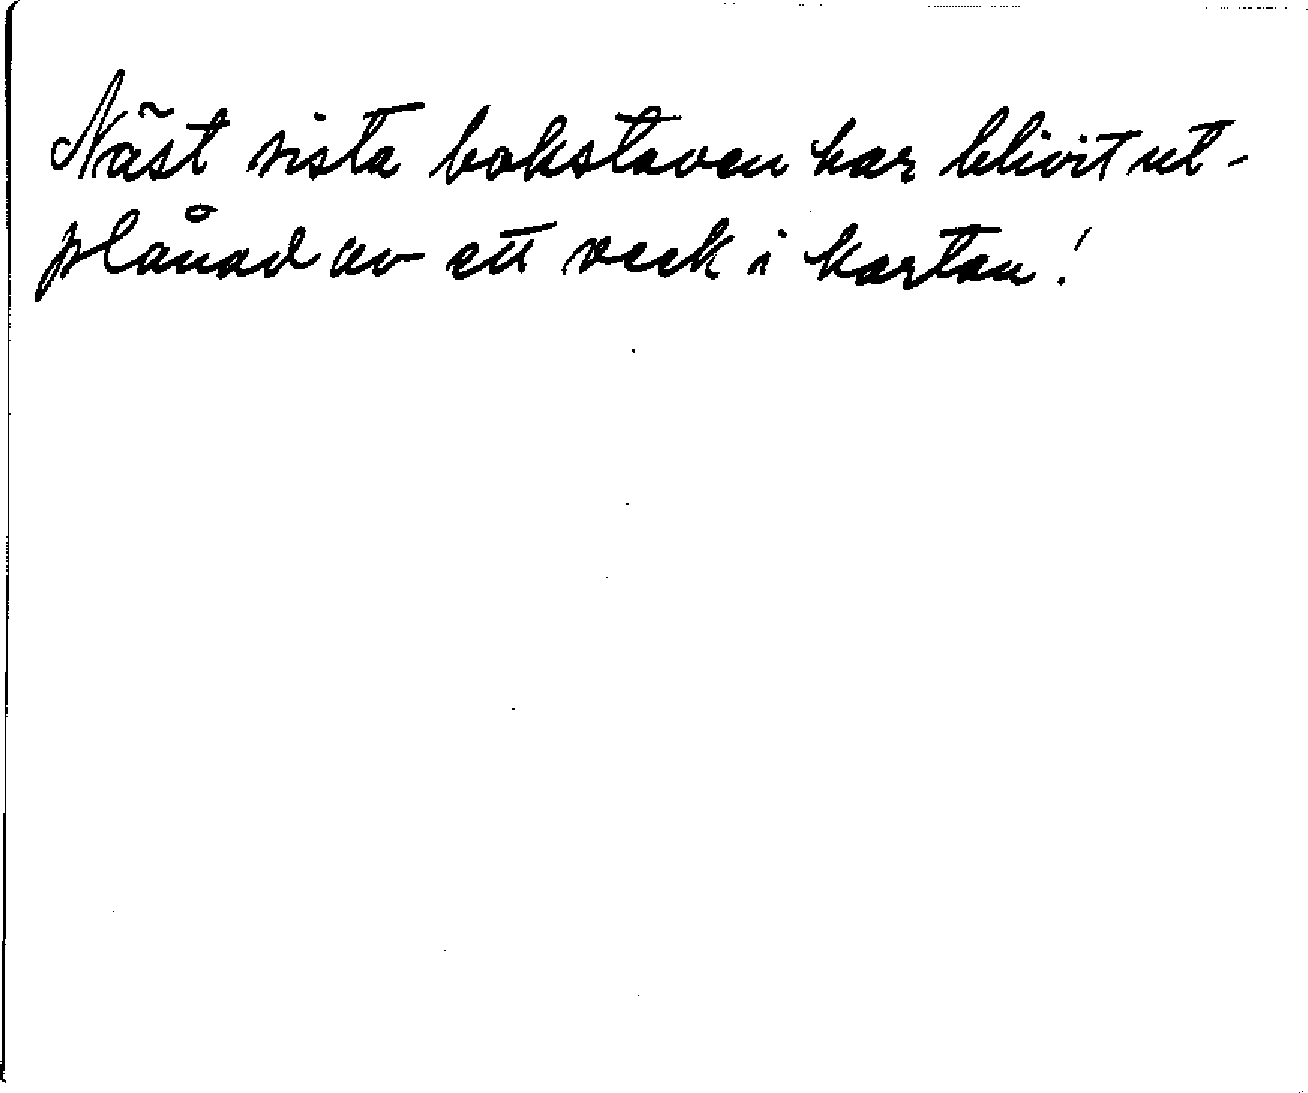 Näst sista bokstaven har blivit ut-
plånad av ett veck i kartan!